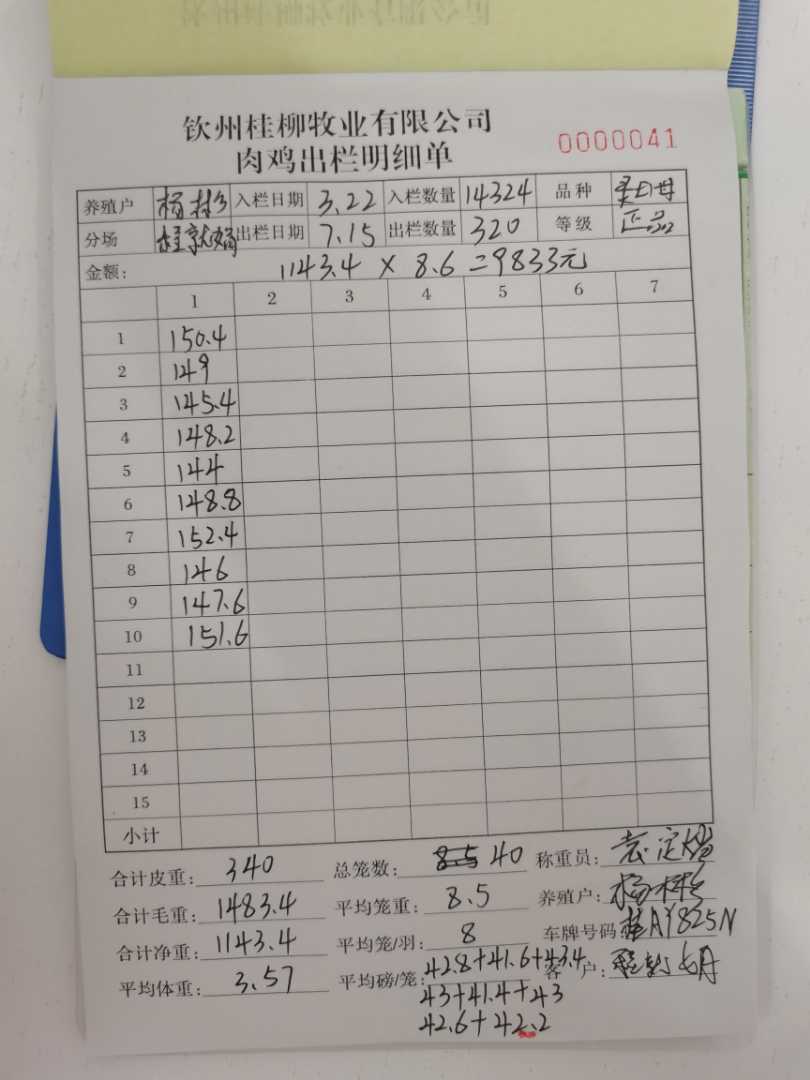 钦州桂柳牧业有限公司
肉鸡出栏明细单 0000041
养殖户 杨彬 入栏日期 3.22 入栏数量 14324 品种
分场 出栏日期 7.15 出栏数量 320 等级 正品
金额: 1143.4 × 8.6 = 9833元
1 2 3 4 5 6 7
1 150.4
2 149
3 145.4
4 148.2
5 144
6 148.8
7 152.4
8 146
9 147.6
10 151.6
11
12
13
14
15
小计
合计皮重: 340 总笼数: 40 称重员:
合计毛重: 1483.4 平均笼重: 8.5 养殖户: 杨彬
合计净重: 1143.4 平均笼/羽: 8 车牌号码 桂AY825N
平均体重: 3.57 平均磅/笼: 42.8+41.6+43.4 客户:
43+41.4+43
42.6+42.2